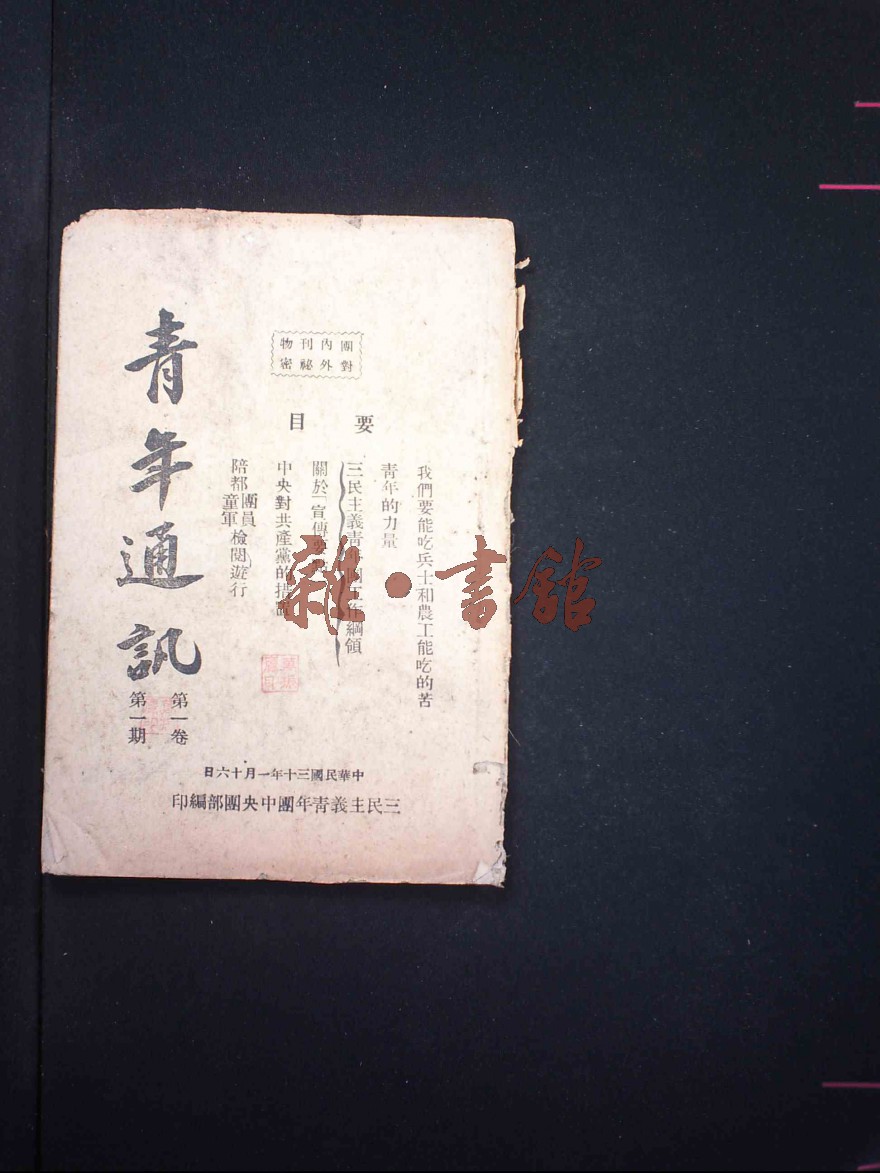 團內刊物
對外祕密
要目
我們要能吃兵士和農工能吃的苦
青年的力量
三民主義青年團工作綱領
關於「宣傳
中央對共產黨的措置
陪都團員童軍檢閱遊行
青年通訊
第一卷
第一期
中華民國三十年一月十六日
三民主義青年團中央團部編印
雜·書館